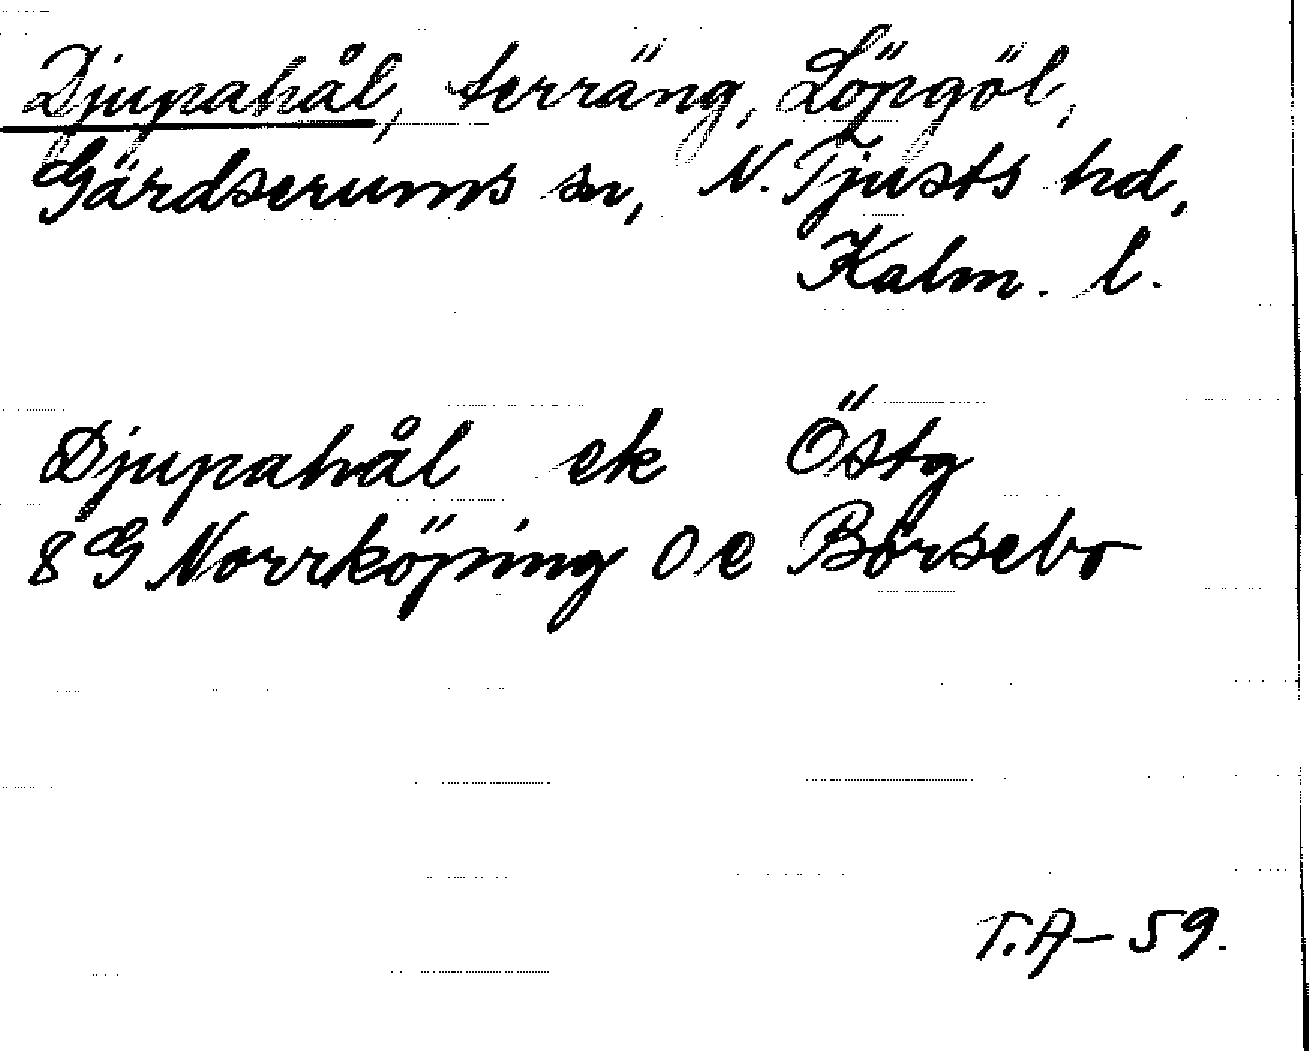 Djupahål, terräng, Löpgöl,
Gärdserums sn, N. Tjusts hd,
Kalm. l.
Djupahål ek Östg
8 G Norrköping 0 e Börsebo
T.A-59.